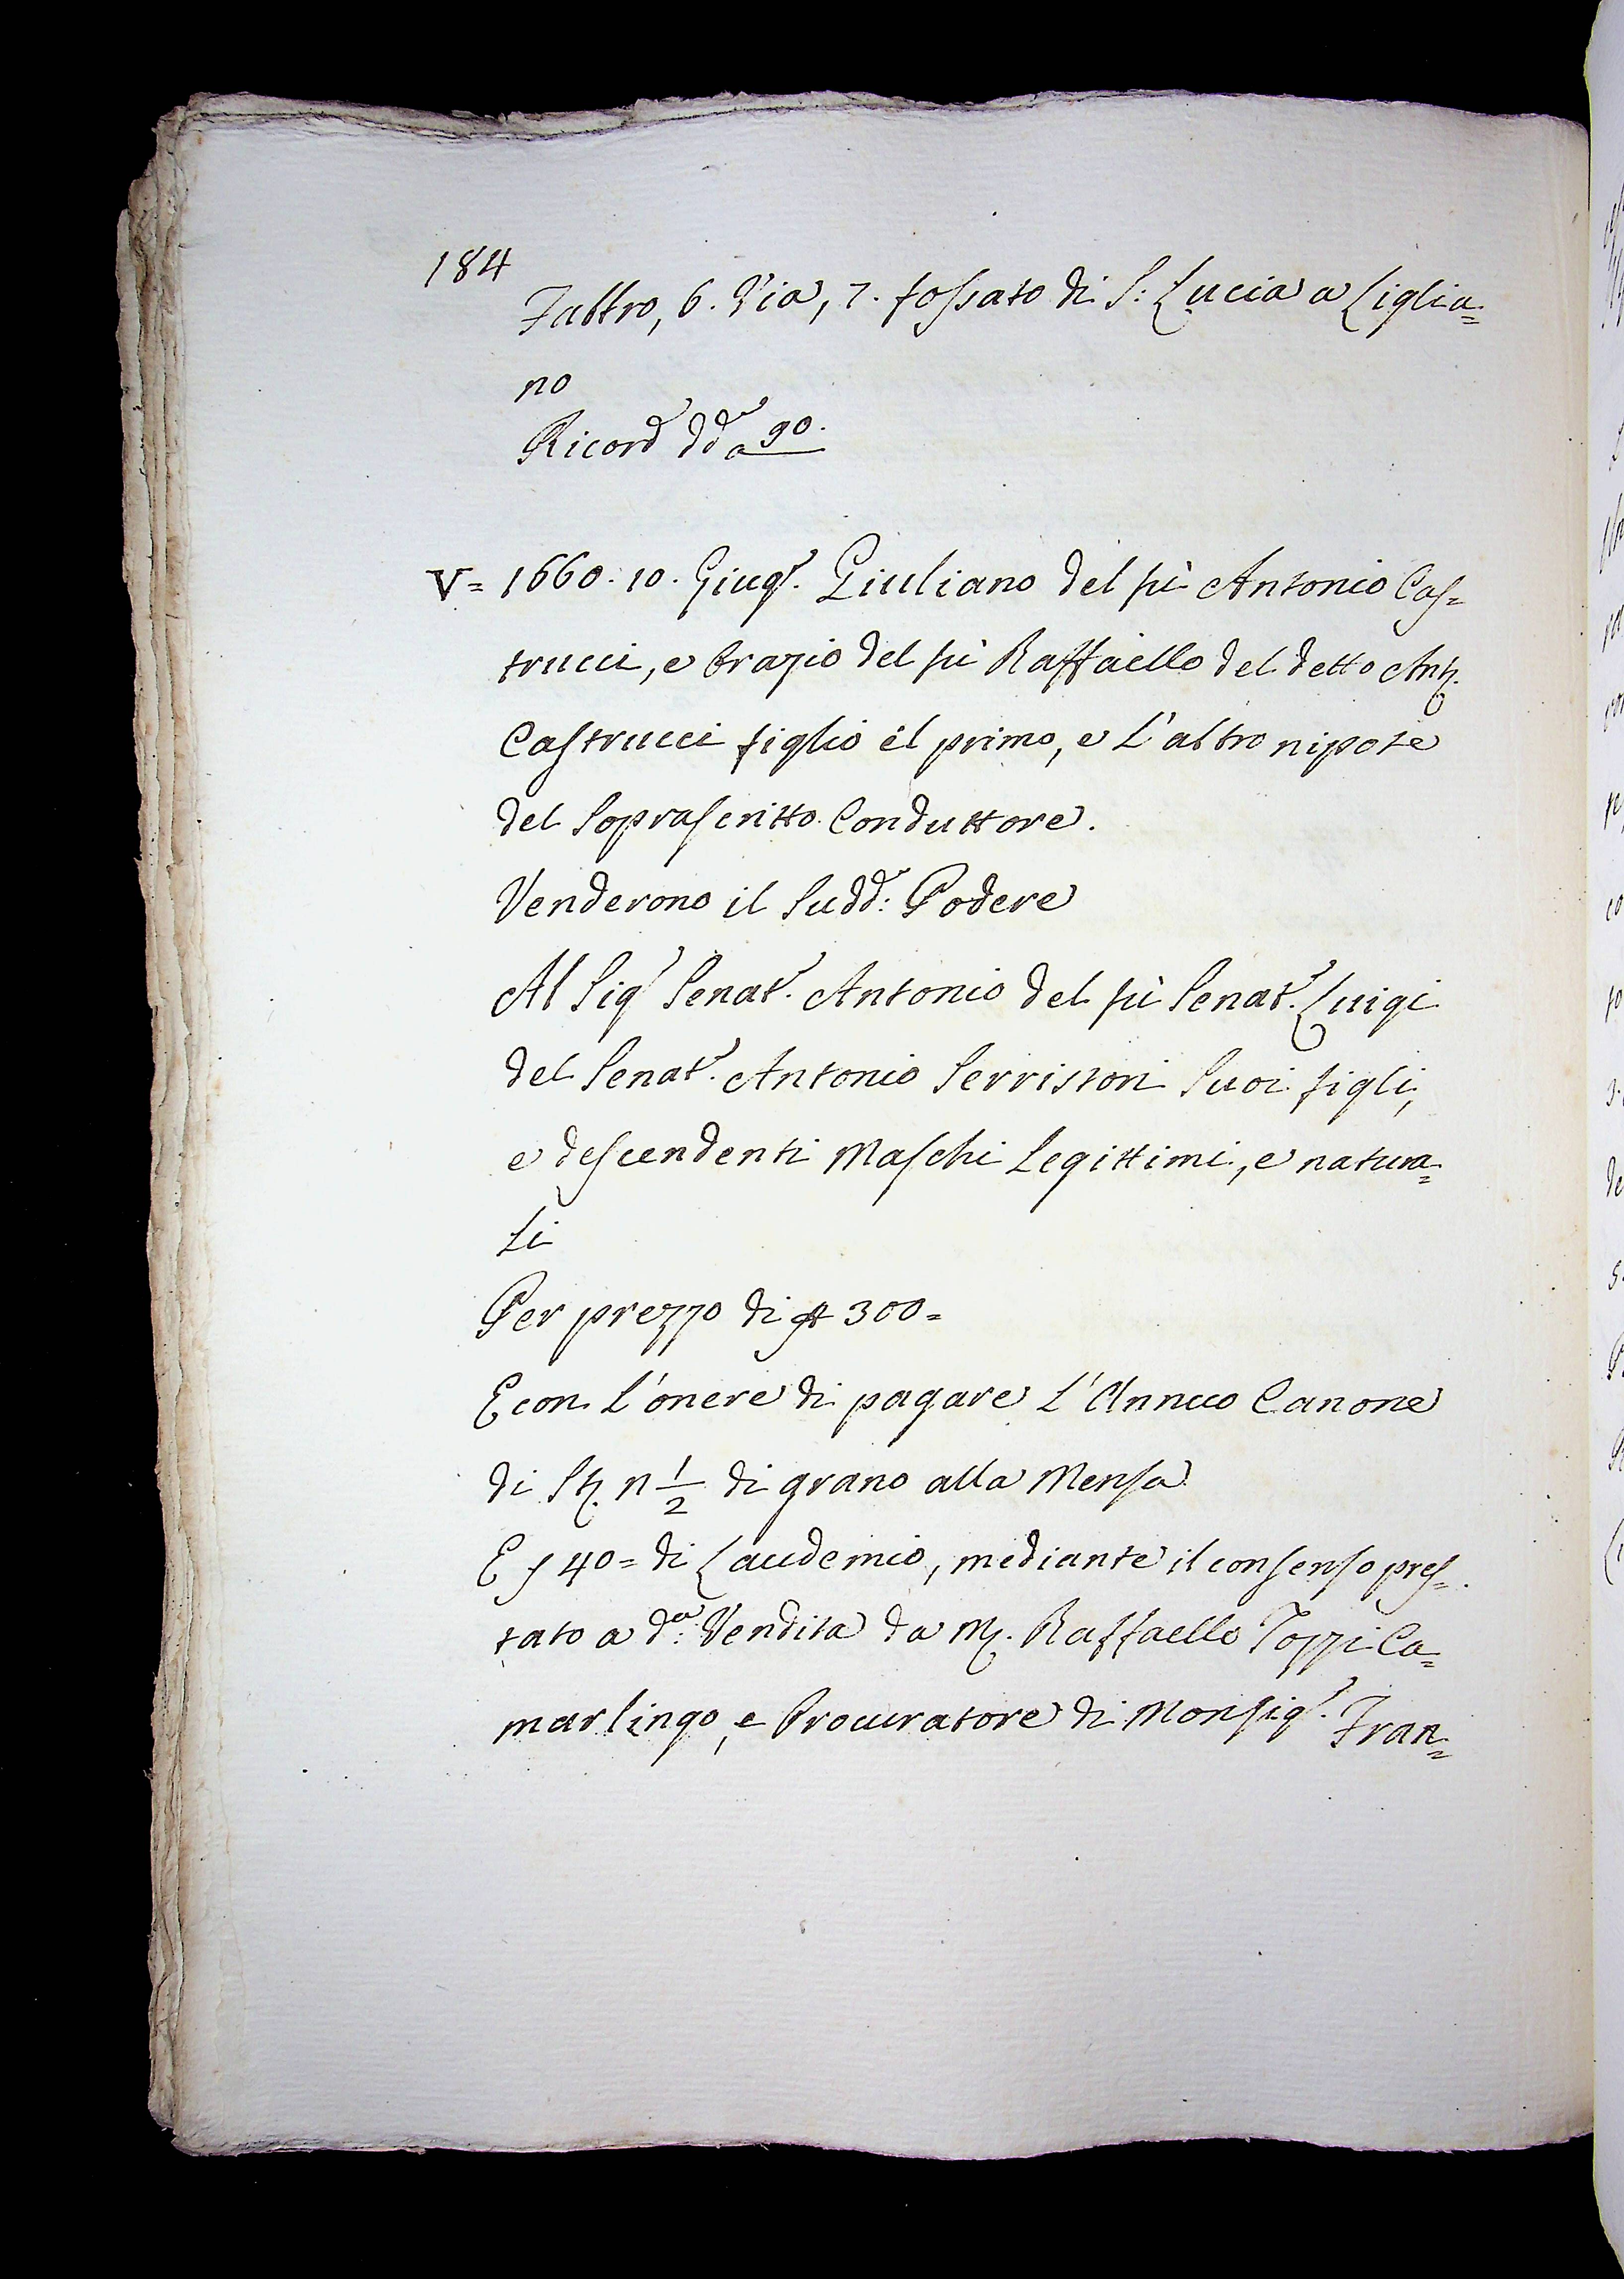 184
Faltro, 6. Via, 7. fossato di S: Lucia a Ciglia=
no
Ricord dd a 90.
V= 1660. 10. Giug. Giuliano del fù Antonio Cas=
trucci, e Orazio del fù Raffaello del detto Ant.
Castrucci figlio il primo, e L'altro nipote
del Soprascritto Conduttore.
Venderono il Sudd: Podere
Al Sig Senat. Antonio del fù Senat. Luigi
del Senat. Antonio Serristori Suoi figli,
e descendenti Maschi Legittimi, e natura=
li
Per prezzo di 300=
E con L'onere di pagare L'Annuo Canone
di St. n 1/2 di grano alla Mensa
E 40= di Laudemio, mediante il consenso pres=
tato a da: Vendita da M. Raffaello Tozzi Ca=
marlingo, e Procuratore di Monsig. Fran=